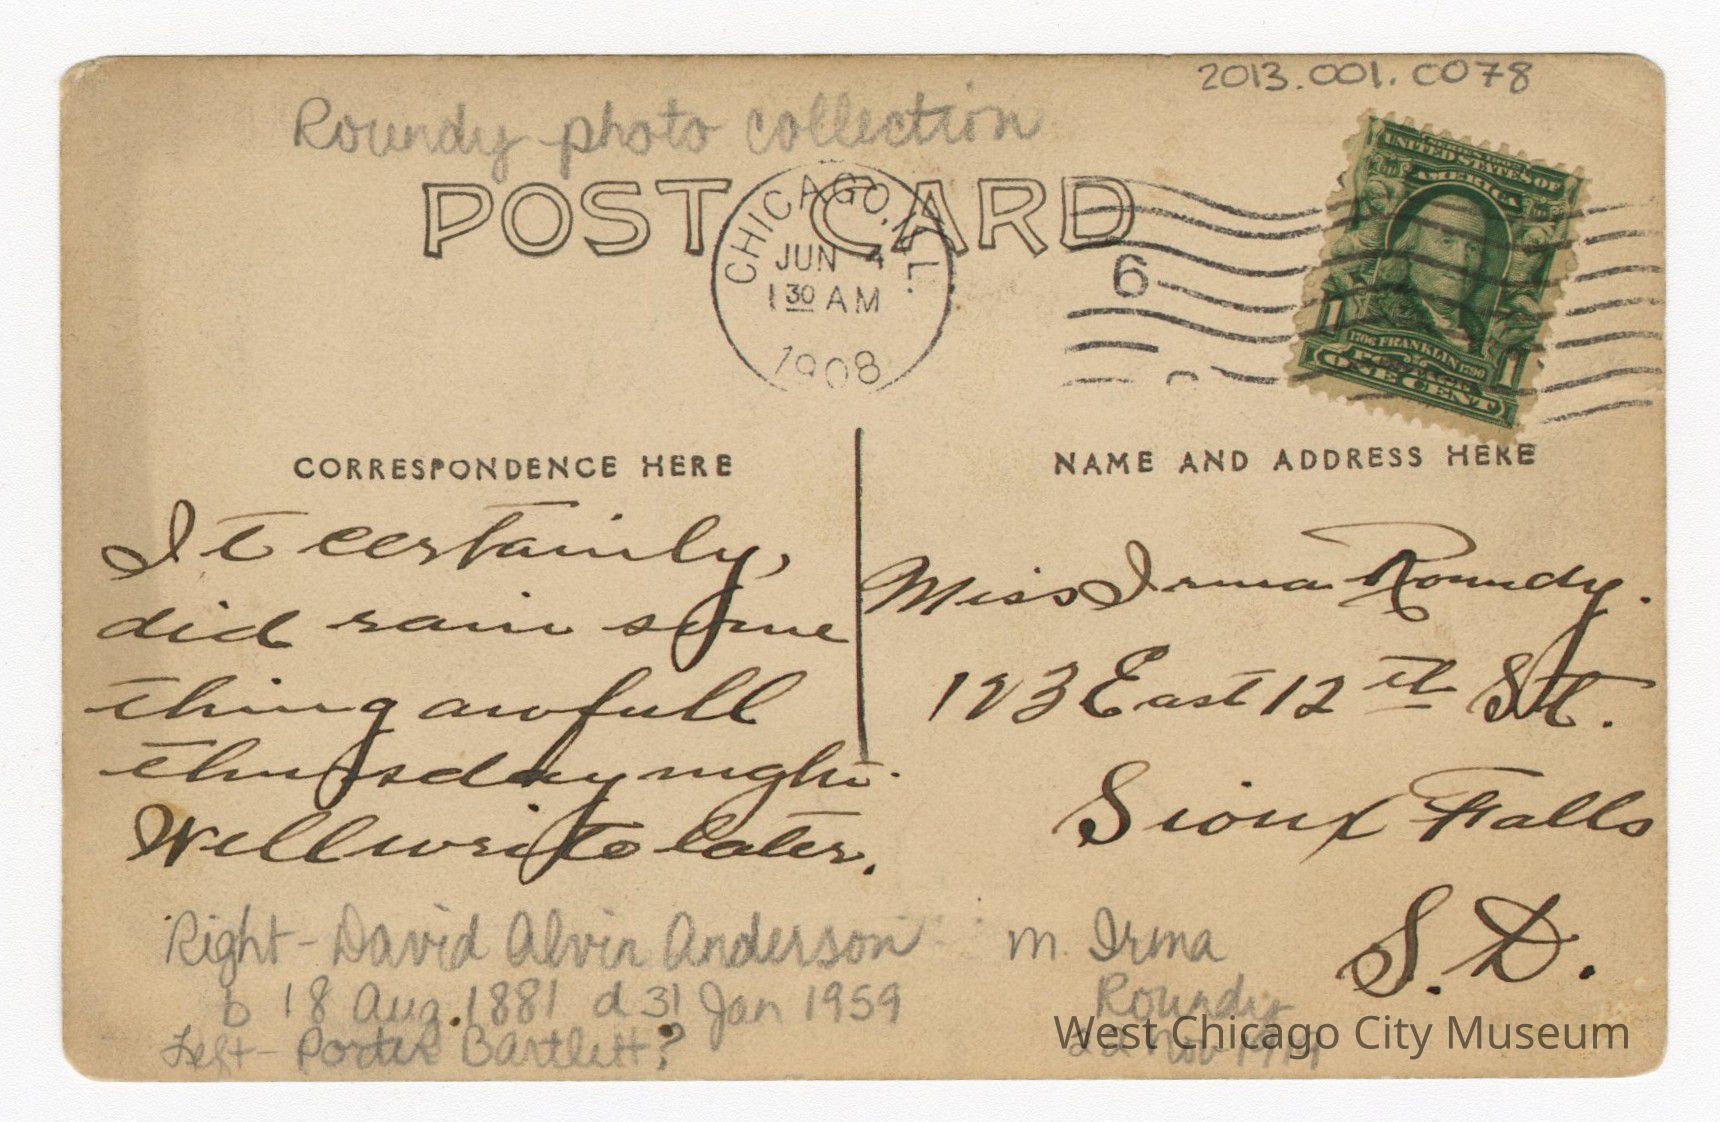 2013.001.C078
Roundy photo collection
POST CARD
CHICAGO, ILL.
JUN 4
1 30 AM
1908
6
SERIES 1902
UNITED STATES OF
AMERICA
1706 FRANKLIN 1790
POSTAGE
1 ONE CENT 1
CORRESPONDENCE HERE
It certainly,
did rain some
thing awfull
thursday night.
Well write later.
NAME AND ADDRESS HERE
Miss Irma Roundy.
123 East 12th St.
Sioux Falls
S.D.
Right - David Alvin Anderson
b 18 Aug. 1881 d 31 Jan 1959
Left - Porter Bartlett?
m. Irma
Roundy
Nov
West Chicago City Museum